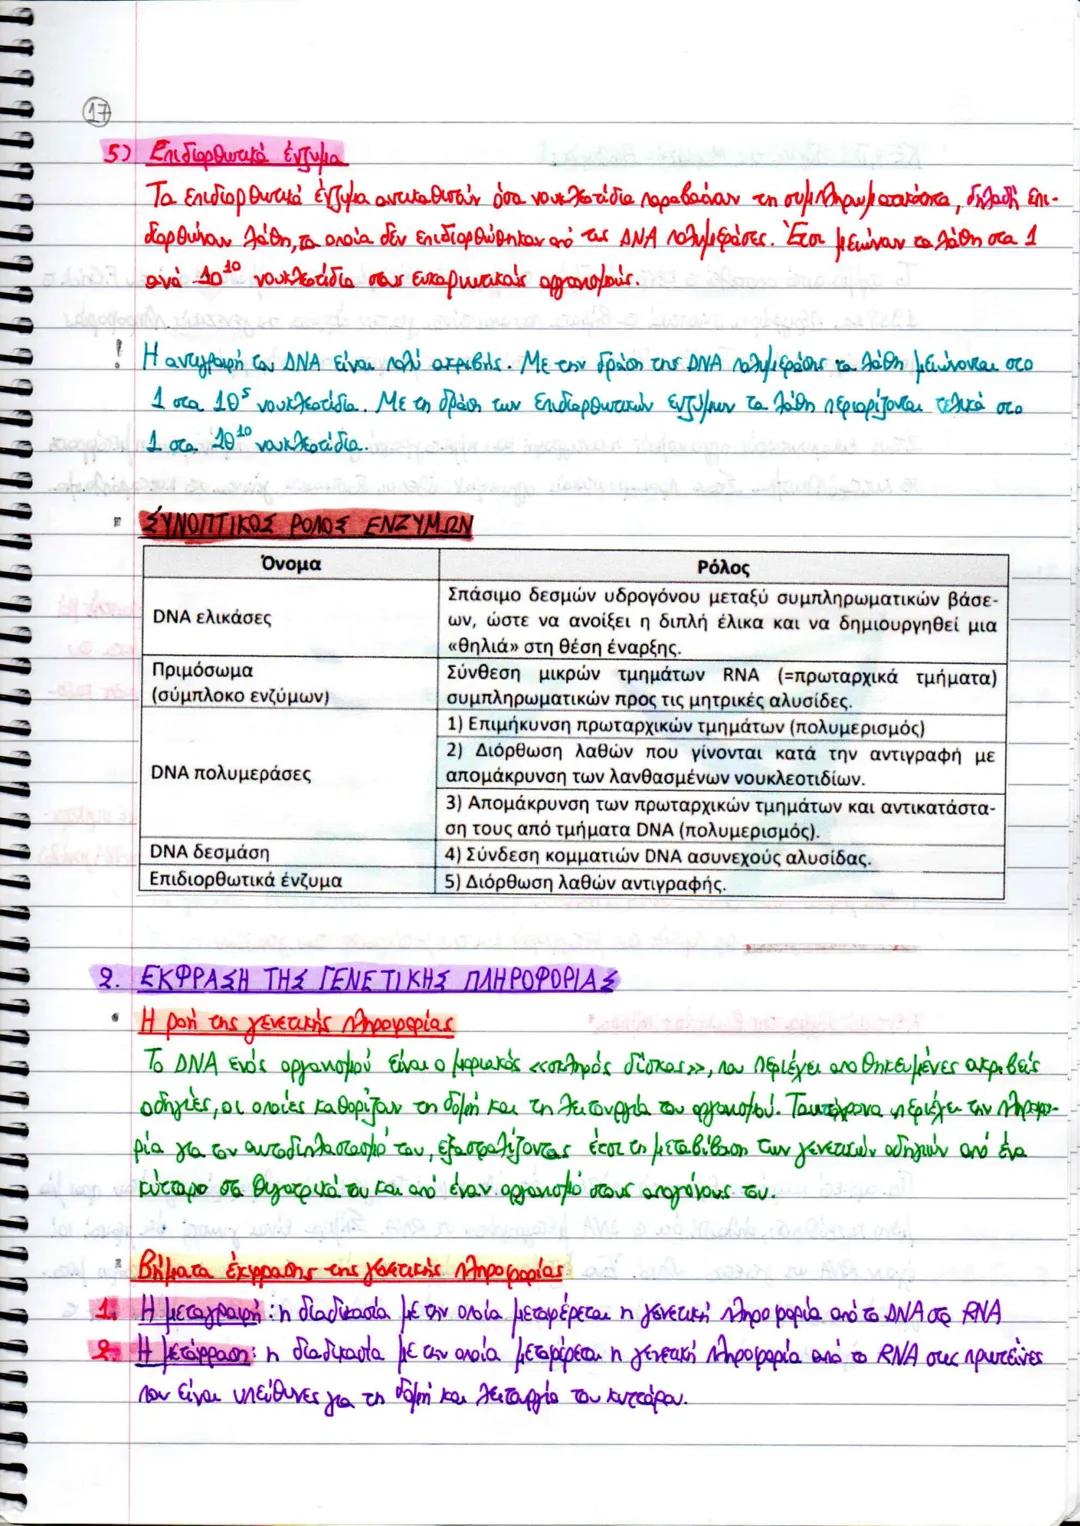 17
5) Επιδιορθωτικά ένζυμα
Τα επιδιορθωτικά ένζυμα αντικαθιστούν όσα νουκλεοτίδια παραβαίνουν τη συμπληρωματικότητα, δηλαδή επι-
διορθώνουν λάθη, τα οποία δεν επιδιορθώθηκαν από τις DNA πολυμεράσες. Έτσι μειώνουν τα λάθη στα 1
ανά 10¹⁰ νουκλεοτίδια στους ευκαρυωτικούς οργανισμούς.
! Η αντιγραφή του DNA είναι πολύ ακριβής. Με την δράση της DNA πολυμεράσης τα λάθη μειώνονται στο
1 στα 10⁵ νουκλεοτίδια. Με τη δράση των επιδιορθωτικών ενζύμων τα λάθη περιορίζονται τελικά στο
1 στα 10¹⁰ νουκλεοτίδια.
ΣΥΝΟΠΤΙΚΟΣ ΡΟΛΟΣ ΕΝΖΥΜΩΝ
Όνομα Ρόλος
DNA ελικάσες
Σπάσιμο δεσμών υδρογόνου μεταξύ συμπληρωματικών βάσε-
ων, ώστε να ανοίξει η διπλή έλικα και να δημιουργηθεί μια
«θηλιά» στη θέση έναρξης.
Πριμόσωμα
(σύμπλοκο ενζύμων)
Σύνθεση μικρών τμημάτων RNA (=πρωταρχικά τμήματα)
συμπληρωματικών προς τις μητρικές αλυσίδες.
DNA πολυμεράσες
1) Επιμήκυνση πρωταρχικών τμημάτων (πολυμερισμός)
2) Διόρθωση λαθών που γίνονται κατά την αντιγραφή με
απομάκρυνση των λανθασμένων νουκλεοτιδίων.
3) Απομάκρυνση των πρωταρχικών τμημάτων και αντικατάστα-
ση τους από τμήματα DNA (πολυμερισμός).
DNA δεσμάση 4) Σύνδεση κομματιών DNA ασυνεχούς αλυσίδας.
Επιδιορθωτικά ένζυμα 5) Διόρθωση λαθών αντιγραφής.
2. ΕΚΦΡΑΣΗ ΤΗΣ ΓΕΝΕΤΙΚΗΣ ΠΛΗΡΟΦΟΡΙΑΣ
• Η ροή της γενετικής πληροφορίας
Το DNA ενός οργανισμού είναι ο μοριακός «σκληρός δίσκος», που περιέχει αποθηκευμένες ακριβείς
οδηγίες, οι οποίες καθορίζουν τη δομή και τη λειτουργία του οργανισμού. Ταυτόχρονα περιέχει την πληροφο-
ρία για τον αυτοδιπλασιασμό του, εξασφαλίζοντας έτσι τη μεταβίβαση των γενετικών οδηγιών από ένα
κύτταρο στα θυγατρικά του και από έναν οργανισμό στους απογόνους του.
Βήματα έκφρασης της γενετικής πληροφορίας
1. Η μεταγραφή: η διαδικασία με την οποία μεταφέρεται η γενετική πληροφορία από το DNA στο RNA
2. Η μετάφραση: η διαδικασία με την οποία μεταφέρεται η γενετική πληροφορία από το RNA στις πρωτεΐνες
που είναι υπεύθυνες για τη δομή και λειτουργία του κυττάρου.